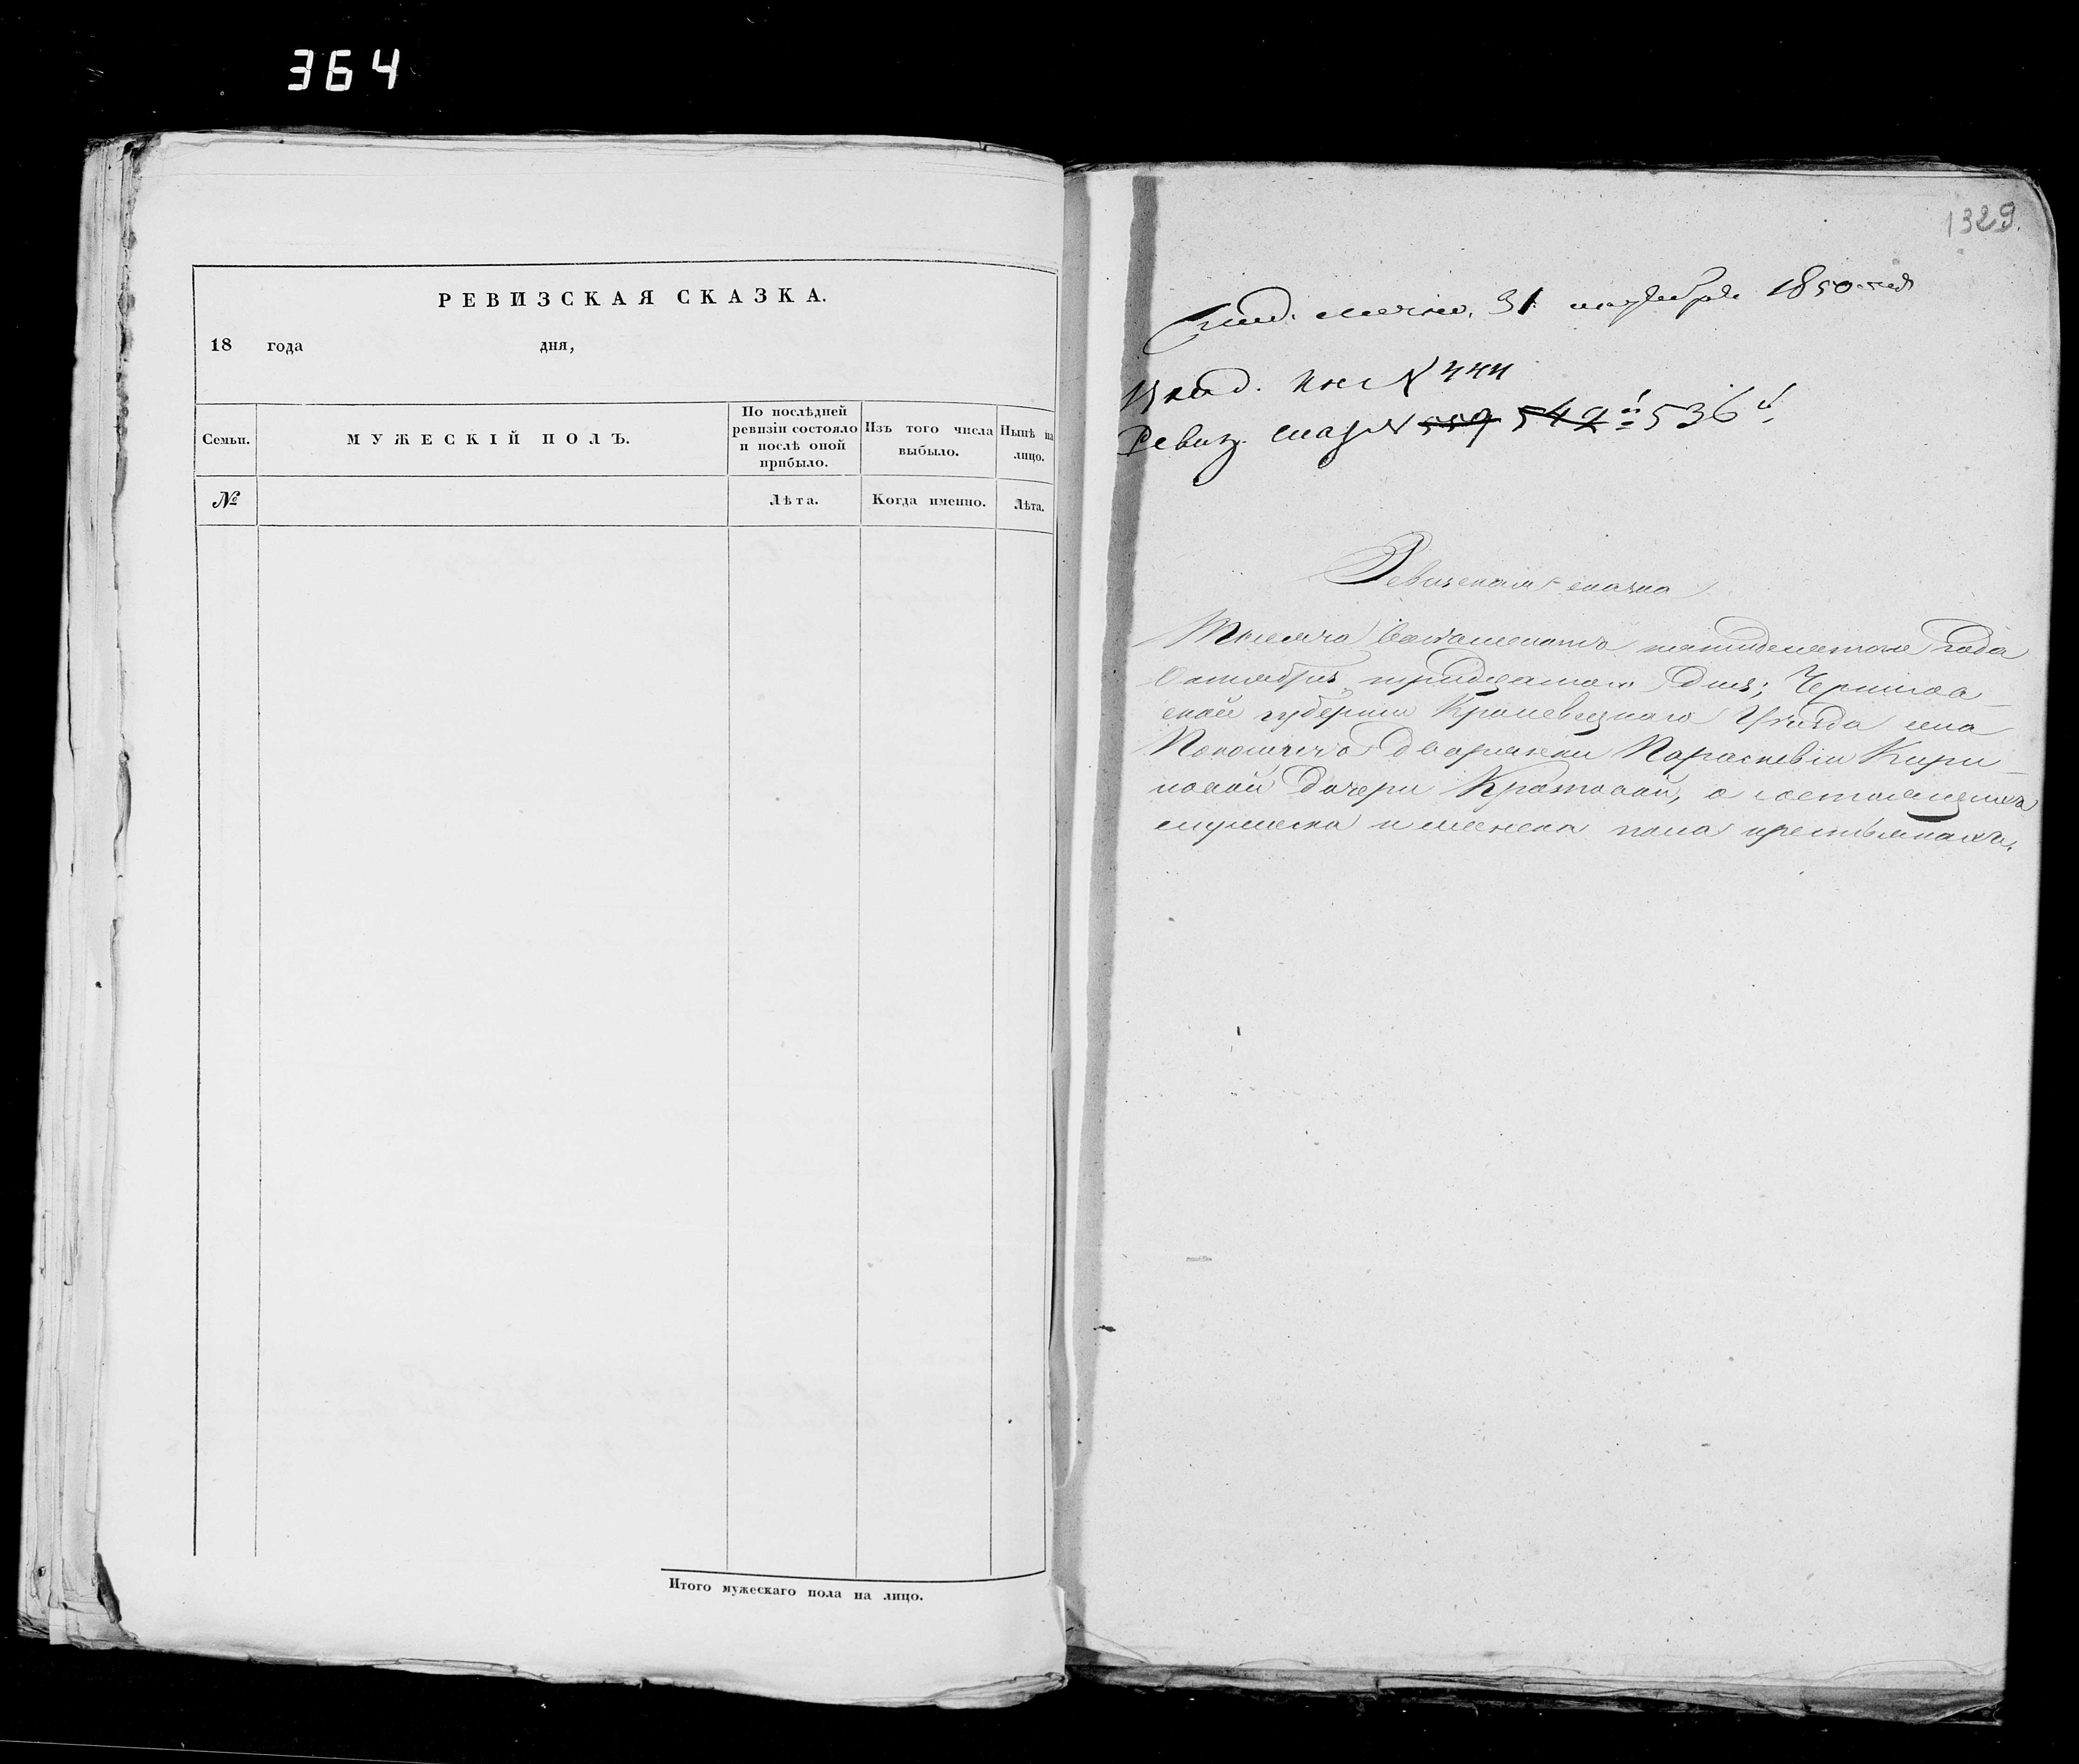 364
РЕВИЗСКАЯ СКАЗКА.
18 года дня,
Семьи.
МУЖЕСКІЙ ПОЛЪ.
По послѣдней
ревизіи состояло
и послѣ оной
прибыло.
Изъ того числа
выбыло.
Нынѣ на
лицо.
№
Лѣта.
Когда именно.
Лѣта.
Итого мужескаго пола на лицо.
1329.
31 октября 1850 года
№ 444
Ревиз. сказ № 559 549й 536й
Ревизская сказка
Тысяча восемьсотъ пятидесятого года
Октября тридцатого дня; Чернигов-
ской губерніи Кролевецкаго Уѣзда села
Покошичъ Дворянки Параскевіи Кири-
ловой дочери, о состоящихъ
мужеска и женска пола крестьянахъ.